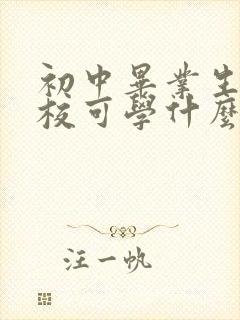 初中畢業生
校可學什麼
汪一帆